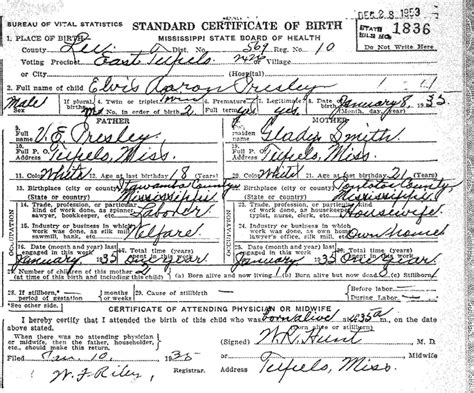 BUREAU OF VITAL STATISTICS STANDARD CERTIFICATE OF BIRTH
DEC 28 1953
MISSISSIPPI STATE BOARD OF HEALTH
STATE FILE NO 1836
1. PLACE OF BIRTH
County Lee Dist. No. 569 Reg. No. 10
Voting Precinct East Tupelo or Village
or City (Hospital)
2. Full name of child Elvis Aaron Presley
Male If plural births Twin or triplet No. in order of birth 2 Premature Full term yes January 8, 1935
FATHER MOTHER
V. E. Presley Gladys Smith
P. O. Address Tupelo, Miss. P. O. Address Tupelo, Miss.
11. Color White 12. Age at last birthday 18 (Years) 20. Color White 21. Age at last birthday 21 (Years)
13. Birthplace (city or county) Itawamba County Birthplace (city or county) Pontotoc County
(State or country) Mississippi (State or country) Mississippi
OCCUPATION 14. Trade, profession, or particular kind of work done, as spinner, sawyer, bookkeeper, etc. Laborer OCCUPATION Trade, profession, or particular kind of work done, as housekeeper, typist, nurse, clerk, etc. Housewife
15. Industry or business in which work was done Welfare Industry or business in which work was done, as own home, lawyer's office, silk mill, etc. Own home
16. Date (month and year) last engaged in this work January 1935 17. Total time (years) spent in this work Date (month and year) last engaged in this work January 1935 Total time (years) spent in this work
Number of children of this mother (at time of this birth and including this child) 2 (a) Born alive and now living 1 (b) Born alive but now dead (c) Stillborn 1
28. If stillborn, period of gestation months or weeks 29. Cause of stillbirth Before labor
During Labor
CERTIFICATE OF ATTENDING PHYSICIAN OR MIDWIFE
I hereby certify that I attended the birth of this child who was born alive at 4:35 a m, on the date
above stated. (Born alive or stillborn)
When there was no attending physician or midwife, then the father, householder, etc., should make this return. (Signed) W. R. Hunt M. D.
or Midwife
Filed Jan. 10 1935
W. F. Riley Address Tupelo, Miss.